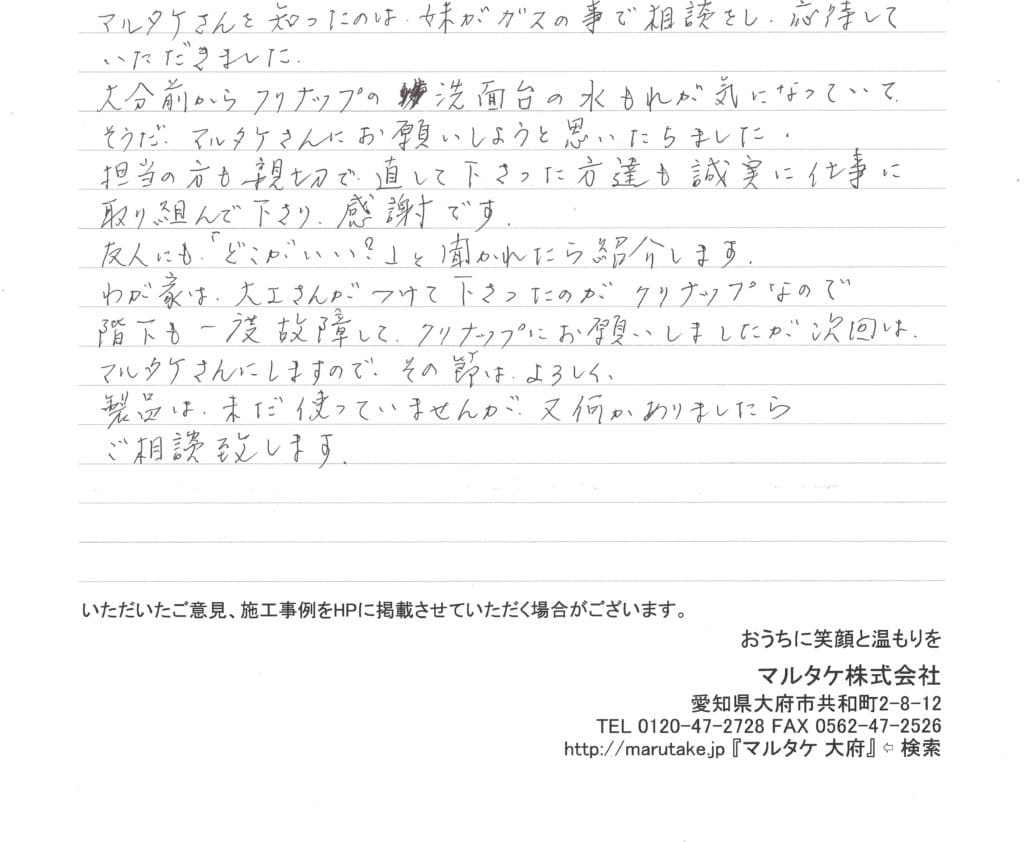 マルタケさんを知ったのは、妹がガスの事で相談をし、応待して
いただきました。
大分前からクリナップの洗面台の水もれが気になっていて、
そうだ、マルタケさんにお願いしようと思いたちました。
担当の方も親切で、直して下さった方達も誠実に仕事に
取り組んで下さり、感謝です。
友人にも、「どこがいい?」と聞かれたら紹介します。
わが家は、大工さんがつけて下さったのがクリナップなので
階下も一度故障して、クリナップにお願いしましたが次回は、
マルタケさんにしますので、その節は、よろしく、
製品は、未だ使っていませんが、又何かありましたら
ご相談致します。
いただいたご意見、施工事例をHPに掲載させていただく場合がございます。
おうちに笑顔と温もりを
マルタケ株式会社
愛知県大府市共和町2-8-12
TEL 0120-47-2728 FAX 0562-47-2526
http://marutake.jp『マルタケ 大府』⇦ 検索